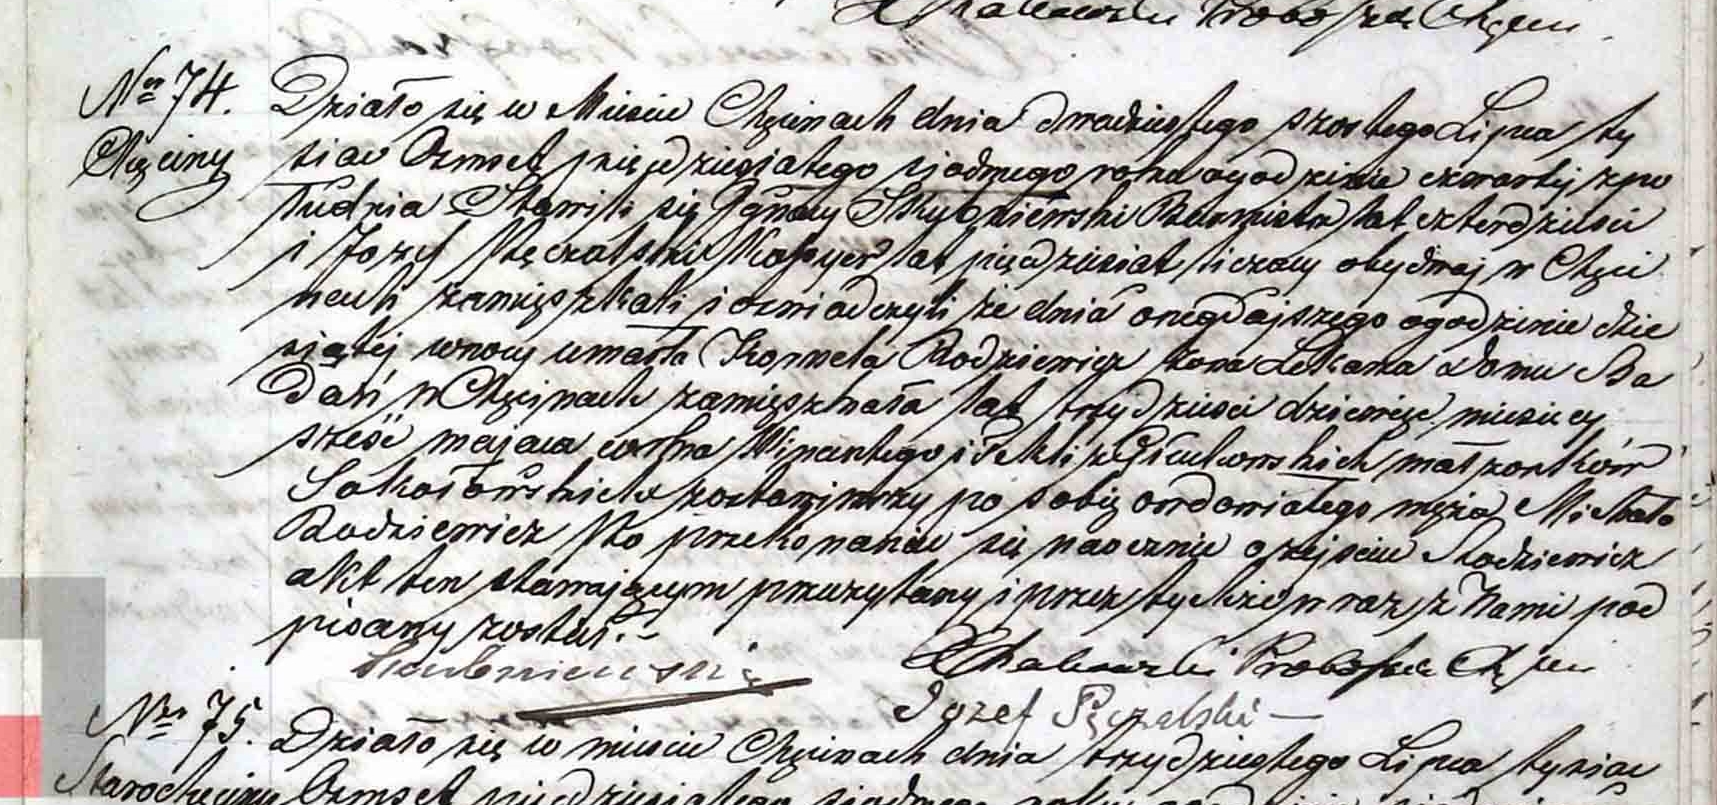 Proboszcz Chęcin
Nro 74. Działo się w Mieście Chęcinach dnia dwudziestego szostego Lipca ty
Chęciny siąc Ośmset pięćdziesiątego siodmego roku o godzinie czwartej z po
łudnia Stawili się Ignacy Burmistrz lat czterdzieści
i Jozef Pęczalski Kassyer lat pięćdziesiat liczący obydwaj w Chęci
nach zamięszkali i oswiadczyli że dnia onegdajszego o godzinie dzie
siątej w nocy umarła Kornela Rodziewicz żona Lekarza Domu Ba
dań w Chęcinach zamięszkała lat trzydzieści dziewięć miesięcy
sześć mająca corka Wincentego i Tekli z małżonków
Sokołowskich zostawiwszy po sobie owdowiałego męża Michała
Rodziewicz Po przekonaniu się naocznie o zejściu Rodziewicz
akt ten stawającym przeczytany i przez tychże wraz z Nami pod
pisany został.
Proboszcz Chęcin
Jozef Pęczalski
Nro 75. Działo się w mieście Chęcinach dnia trzydziestego Lipca tysiac
Starochęciny Ośmset pięćdziesiątego siodmego roku